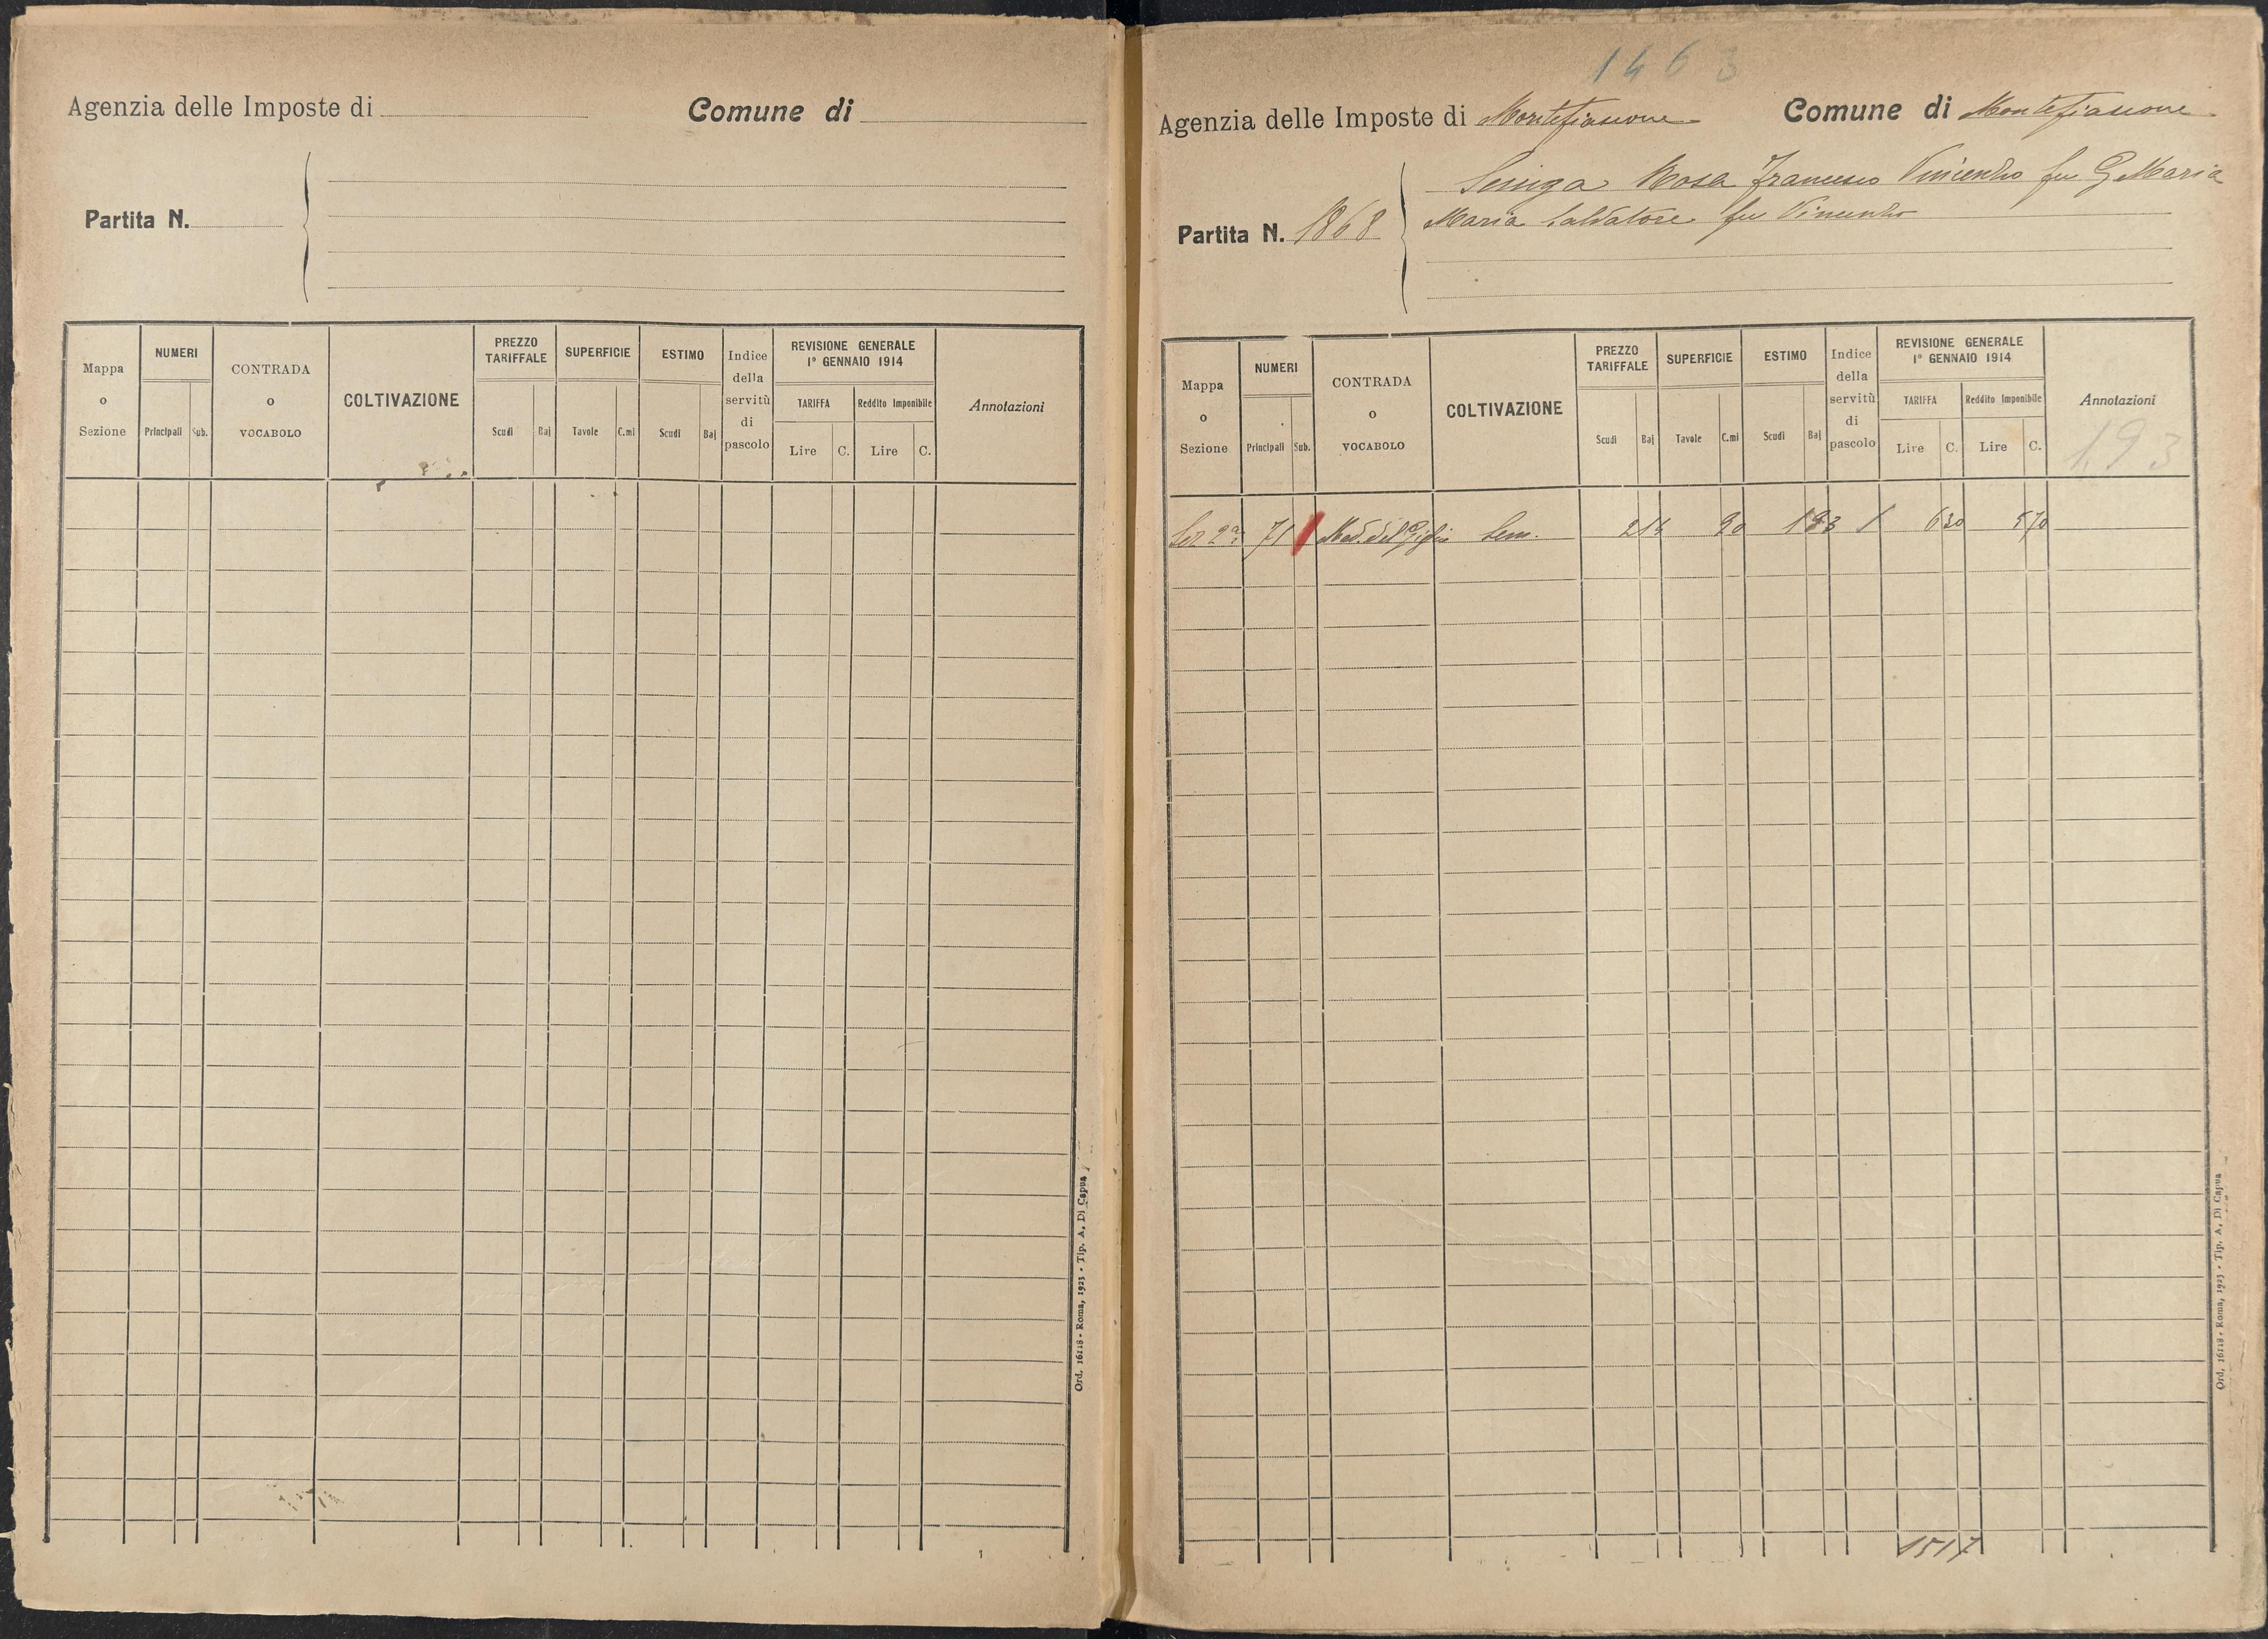 Agenzia delle Imposte di Comune di
Partita N.
Mappa o Sezione NUMERI Principali Sub. CONTRADA o VOCABOLO COLTIVAZIONE PREZZO TARIFFALE Scudi Baj SUPERFICIE Tavole C.mi ESTIMO Scudi Baj Indice della servitù di pascolo REVISIONE GENERALE 1° GENNAIO 1914 TARIFFA Lire C. Reddito Imponibile Lire C. Annotazioni
Ord. 16118 - Roma, 1923 - Tip. A. Di Capua
1463
Agenzia delle Imposte di Montefiascone Comune di Montefiascone
Rosa Francesco Vincenzo fu G Maria
Partita N. 1868 Maria Salvatore fu Vincenzo
Mappa o Sezione NUMERI Principali Sub. CONTRADA o VOCABOLO COLTIVAZIONE PREZZO TARIFFALE Scudi Baj SUPERFICIE Tavole C.mi ESTIMO Scudi Baj Indice della servitù di pascolo REVISIONE GENERALE 1° GENNAIO 1914 TARIFFA Lire C. Reddito Imponibile Lire C. Annotazioni
193
Sez 2a 71 Mad. del Giglio Sem. 214 90 193 1 630 570
1517
Ord. 16118 - Roma, 1923 - Tip. A. Di Capua